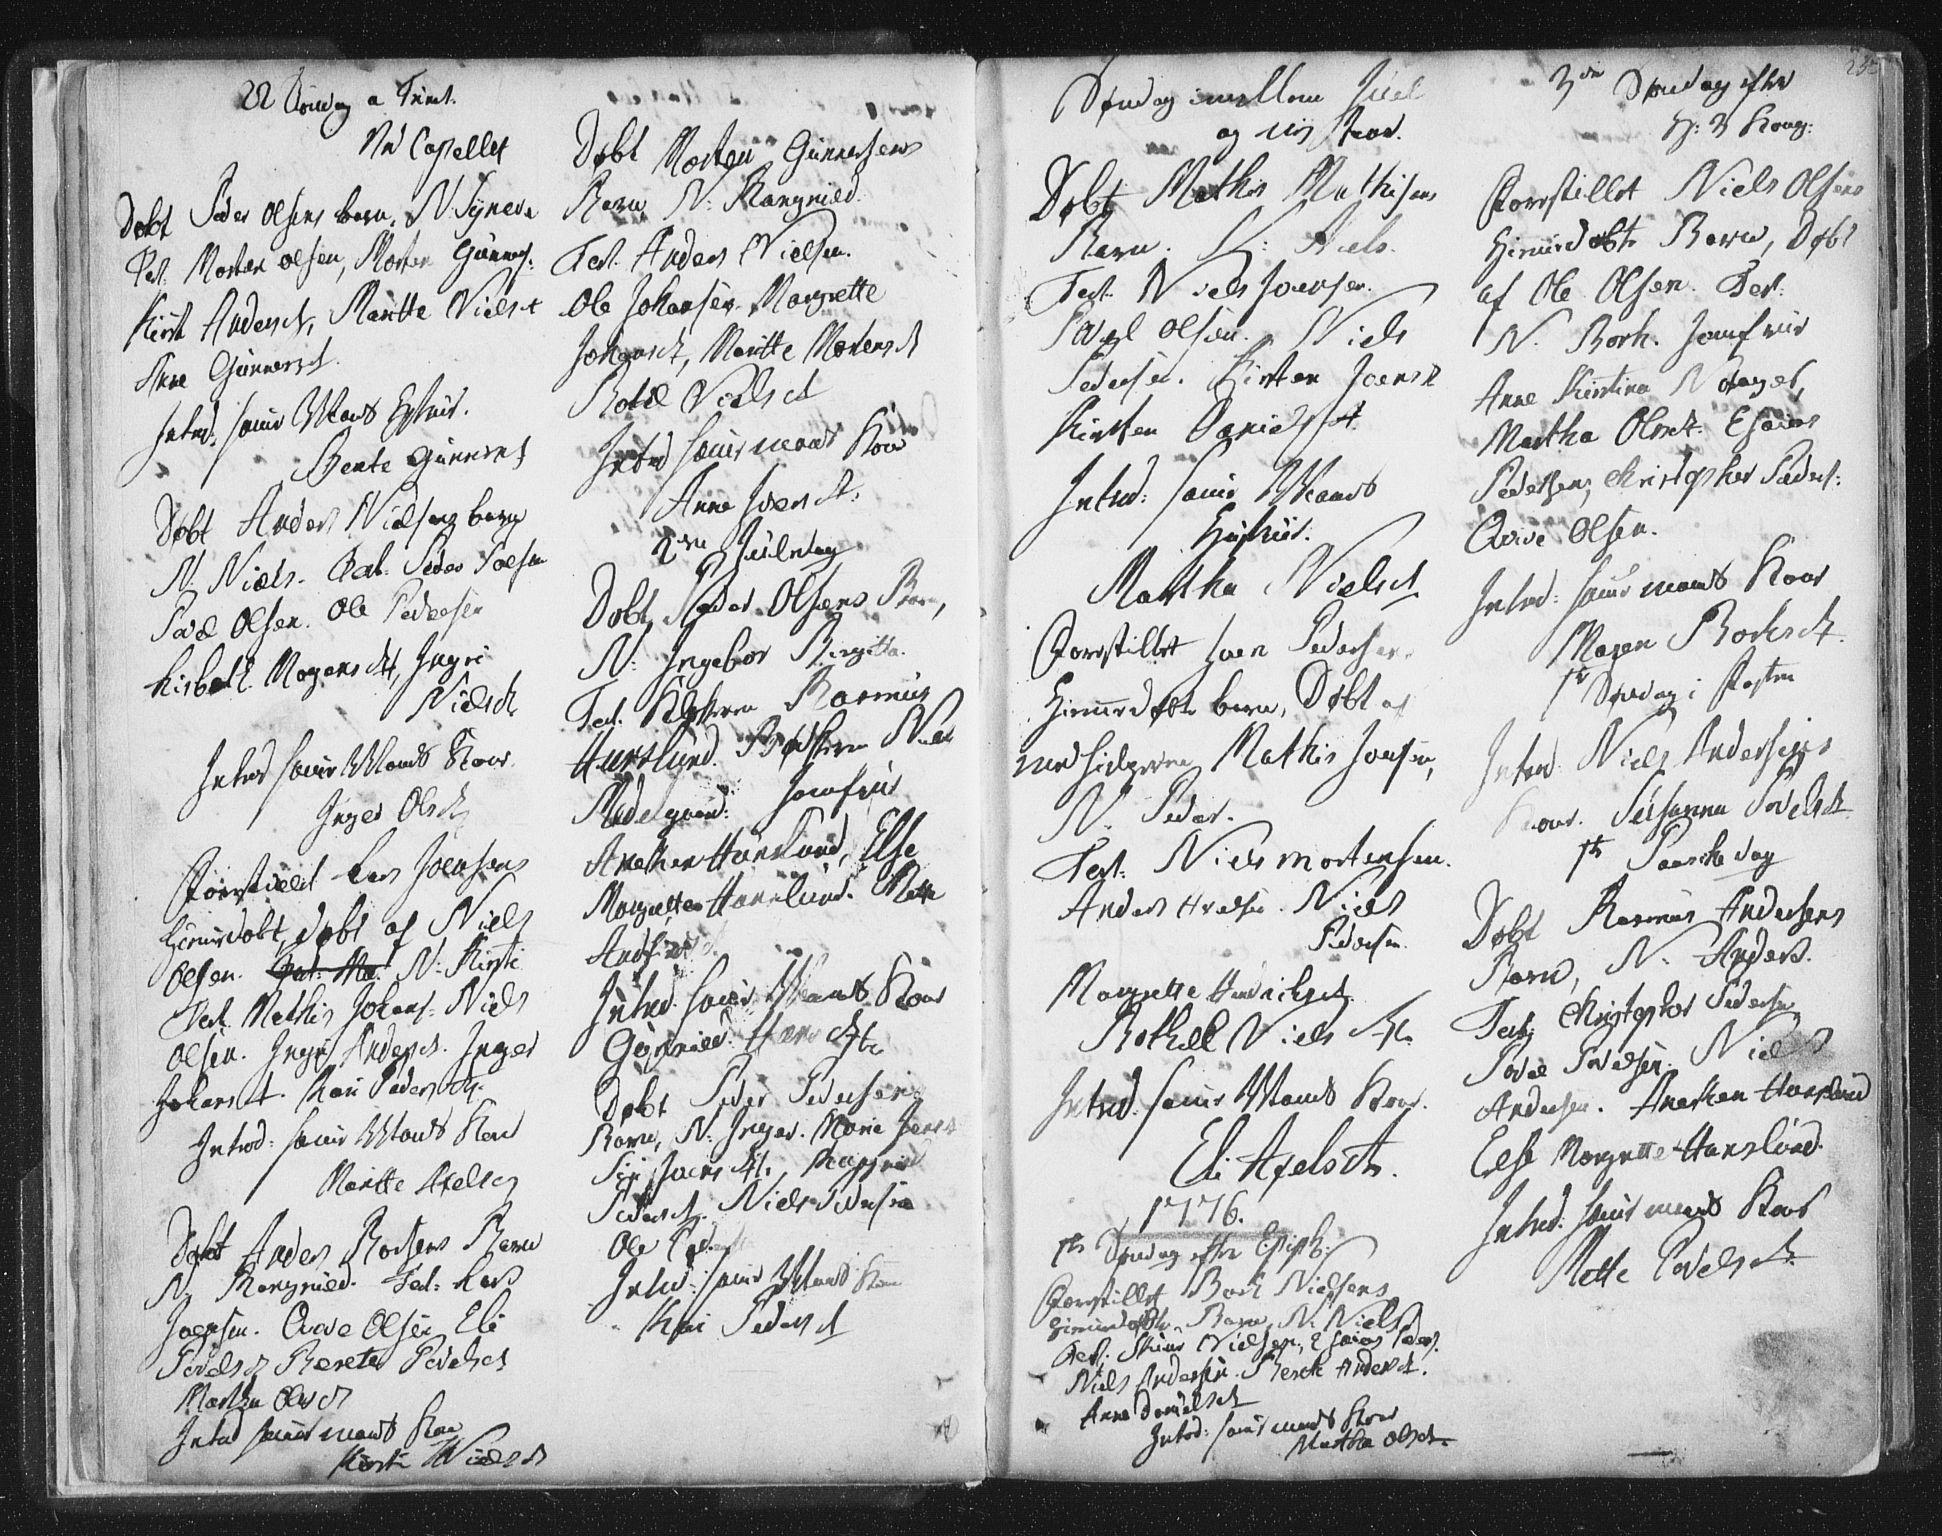 22 Søndag a Trinit.
Ved Capellet
Døbt Peder Olsens barn, N. Syneva
Test. Morten Olsen, Morten Gunners:
Kirst Andersd, Maritte Nielsd
Ane Gunnersd
Introd. samme Mands
Bente Gunnersd
Døbt Anders Nielsens barn
N. Niels. Test. Peder Poelsen
Povel Olsen. Ole Pedersen
Lisbeth Mogensdt, Ingri
Nielsdt
Introd samme Mands Kone
Inger Olsdt
Forestillet Lars Joensens
hiemmedøbt, døbt af Niels
Olsen. N. Kirsti
Test. Mathis Johans: Niels
Olsen. Ingri Andersd. Inger
Johansd. Kari Pedersdt.
Introd: samme Mands Kone
Maritte Axelsd
Døbt Anders Boesens Barn
N. Rangnild. Test: Lars
Joensen. Ovve Olsen Eli
Povelsd Berete Povelsd
Martha Olesd
Introd samme mands Kone
Kirsti Nielsd
Døbt Morten Gunnersens
Barn, N. Rangnild.
Test. Anders Nielsen.
Ole Johansen. Margrette
Johansdt, Maritte Mortensdt
Botil Nielsdt
Introd samme mands Kone
Anne Iversdt.
2den Juledag
Døbt Peder Olsens Barn,
N. Ingebor Birgitta.
Test. Klokkeren Rasmus
Hanslund. Niels
Jomfrue
Anechen Hanslund, Else
Margrette Hanslund. Mette
Introd. samme Mands Kone
Gunnild
Døbt Peder Pedersens
Barn, N. Inger. Marie Jens
Siri Joensdt, Rangnild
Pedersd. Niels Pedersen
Ole Ped.
Introd: samme Mands Kone
Kari Pedersd
Søndag imellem Juel
og nyt Aar.
Døbt Mathis Mathisens
Barn. N: Niels.
Test. Niels Joensen.
Povel Olsen. Niels
Pedersen. Kirsten Joensd
Kirsten Danielsdt.
Introd: samme Mands
Hustrue.
Martha Nielsd
Forestillet Joen Pedersens
hiemmedøbte barn, Døbt af
medhielperen Mathis Joensen,
N. Peder.
Test. Niels Mortensen.
Anders Axelsen. Niels
Pedersen.
Margrette Hendrichsd
Bothild Nielsdt.
Introd. samme Mands Kone.
Eli Axelsdt.
1776.
1te Søndag efter Epiph.
Forestillet Boch Nielsens
hiemmedøbte Barn, N. Niels
Test. Nielsen, Esaias Peders.
Niels Andersen. Berek Andersd.
Anne Danielsd
Introd: samme mands Kone
Martha Olsdt.
3die Søndag efter
H: 3 Kong:
Forestillet Niels Olsens
hiemmedøbte Barn, Døbt
af Ole Olsen. Test.
N. Borh. Jomfrue
Anne Kirstina
Martha Olsdt. Esaias
Pedersen, Christopher Peders:
Ovve Olsen.
Introd: samme mands Kone
Maren Bochsdt.
1te Søndag i Fasten
Introd Niels Andersens
Kone. Susanna Povelsdt
1te Paaskedag
Døbt Rasmus Andersens
Barn, N. Anders.
Test. Christopher Pedersen
Povel Povelsen. Niels
Andersen. Anechen Hanslund
Else Margrette Hanslund.
Introd. samme mands Kone
Mette Povelsdt.